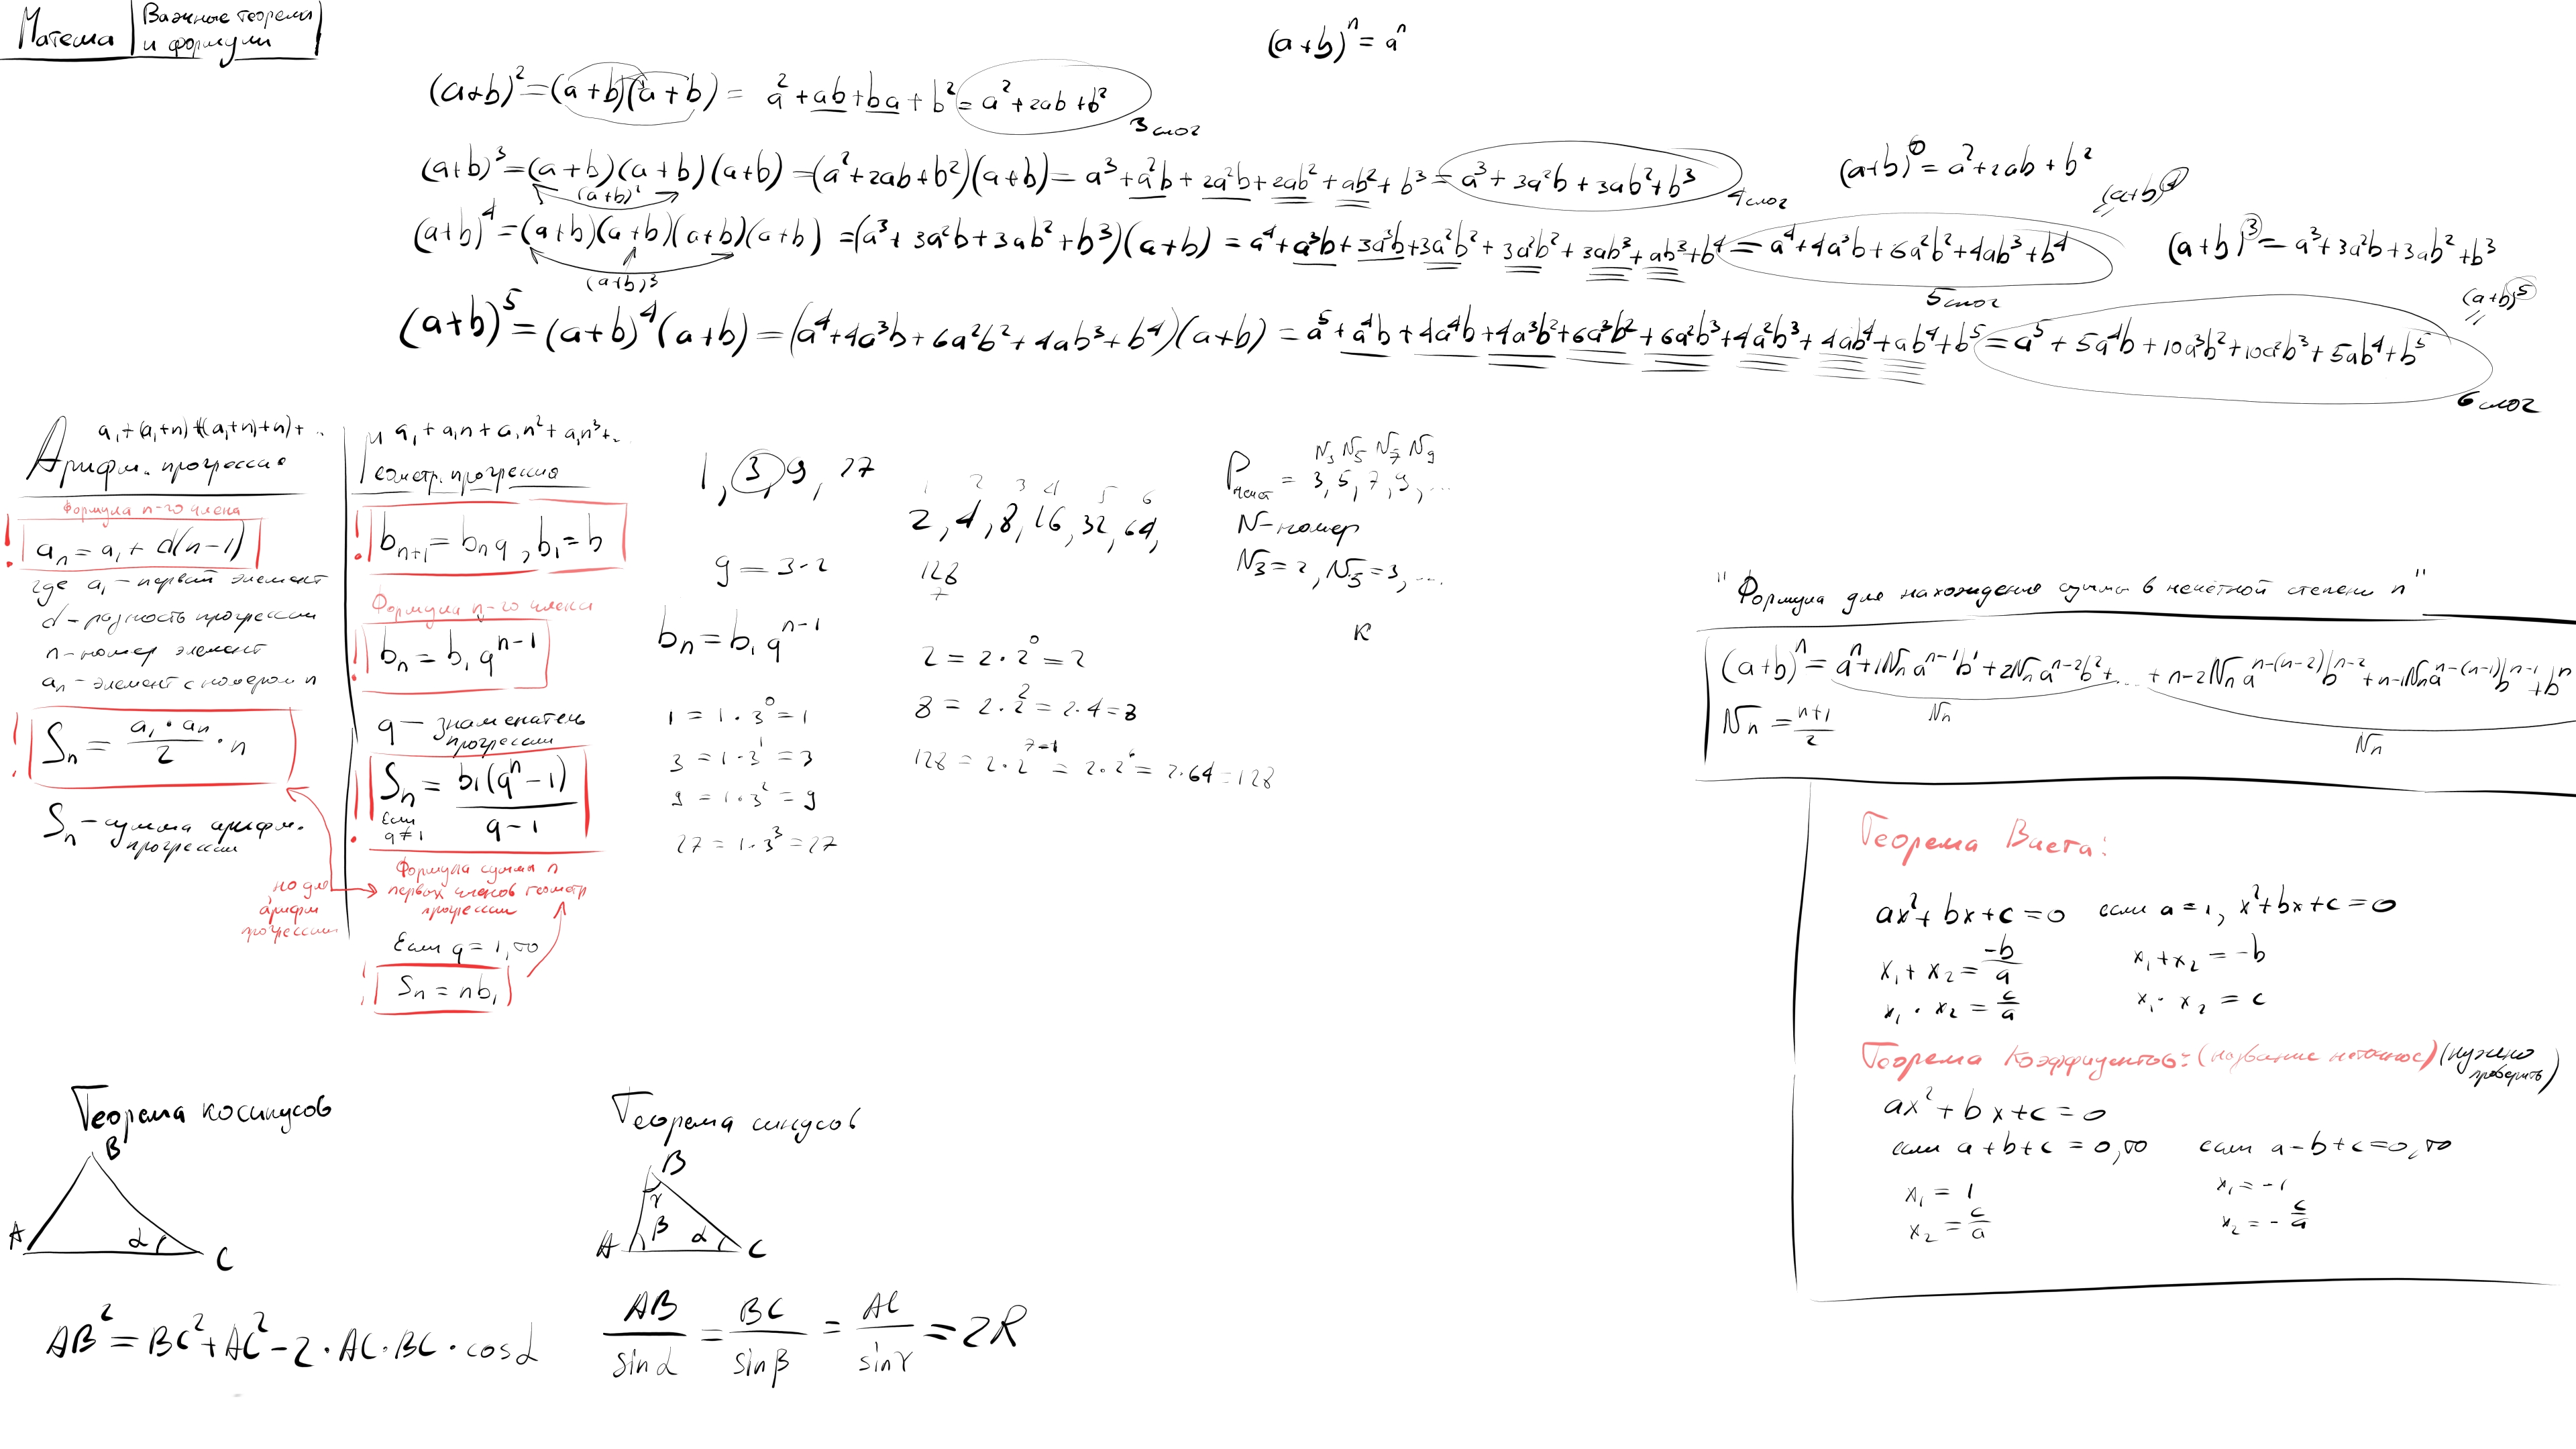 Матеша
Важные теоремы
и формулы
(a+b)ⁿ = aⁿ
(a+b)² = (a+b)(a+b) = a² + ab + ba + b² = a² + 2ab + b²
3 слог
(a+b)³ = (a+b)(a+b)(a+b) = (a² + 2ab + b²)(a+b) = a³ + a²b + 2a²b + 2ab² + ab² + b³ = a³ + 3a²b + 3ab² + b³
4 слог
(a+b)⁴ = (a+b)(a+b)(a+b)(a+b) = (a³ + 3a²b + 3ab² + b³)(a+b) = a⁴ + a³b + 3a³b + 3a²b² + 3a²b² + 3ab³ + ab³ + b⁴ = a⁴ + 4a³b + 6a²b² + 4ab³ + b⁴
(a+b)³
5 слог
(a+b)⁵ = (a+b)⁴(a+b) = (a⁴ + 4a³b + 6a²b² + 4ab³ + b⁴)(a+b) = a⁵ + a⁴b + 4a⁴b + 4a³b² + 6a³b² + 6a²b³ + 4a²b³ + 4ab⁴ + ab⁴ + b⁵ = a⁵ + 5a⁴b + 10a³b² + 10a²b³ + 5ab⁴ + b⁵
6 слог
= a² + 2ab + b²
(a+b)³ = a³ + 3a²b + 3ab² + b³
(a+b)⁵
a₁+(a₁+n)+((a₁+n)+n)+..
Арифм. прогрессия
Формула n-го члена
! aₙ = a₁ + d(n-1)
где a₁ - первый элемент
d - разность прогрессии
n - номер элемент
aₙ - элемент с номером n
! Sₙ = a₁ · aₙ / 2 · n
Sₙ - сумма арифм.
прогрессии
но для
арифм
прогрессии
a₁ + a₁n + a₁n² + a₁n³+..
Геометр. прогрессия
! bₙ₊₁ = bₙq, b₁ = b
Формула n-го члена
! bₙ = b₁qⁿ⁻¹
q - знаменатель
прогрессии
! Sₙ = b₁(qⁿ-1) / q-1
Если
q≠1
Формула суммы n
первых членов геометр
прогрессии
Если q = 1, то
! Sₙ = nb₁
1, 3, 9, 27
9 = 3·2
bₙ = b₁qⁿ⁻¹
1 = 1·3⁰ = 1
3 = 1·3¹ = 3
9 = 1·3² = 9
27 = 1·3³ = 27
1 2 3 4 5 6
2, 4, 8, 16, 32, 64,
128
7
2 = 2·2⁰ = 2
8 = 2·2² = 2·4 = 8
128 = 2·2⁷⁻¹ = 2·2⁶ = 2·64 = 128
N₃ N₅ N₇ N₉
= 3, 5, 7, 9, ...
N - номер
N₃ = 2, N₅ = 3, ...
К
"Формула для нахождения суммы в нечётной степени n"
(a+b)ⁿ = aⁿ + 1Nₙaⁿ⁻¹b¹ + 2Nₙaⁿ⁻²b² + ... + n-2Nₙaⁿ⁻⁽ⁿ⁻²⁾bⁿ⁻² + n-1Nₙaⁿ⁻⁽ⁿ⁻¹⁾bⁿ⁻¹ + bⁿ
Nₙ = n+1 / 2
Nₙ
Nₙ
Теорема Виета:
ax² + bx + c = 0 если a = 1, x² + bx + c = 0
x₁ + x₂ = -b/a x₁ + x₂ = -b
x₁ · x₂ = c/a x₁ · x₂ = c
Теорема Коэффицентов: (название неточное) (нужно проверить)
ax² + bx + c = 0
если a + b + c = 0, то если a - b + c = 0, то
x₁ = 1 x₁ = -1
x₂ = c/a x₂ = - c/a
Теорема косинусов
B
A α C
AB² = BC² + AC² - 2 · AC · BC · cosα
Теорема синусов
B
γ
A β α C
AB/sinα = BC/sinβ = AC/sinγ = 2R